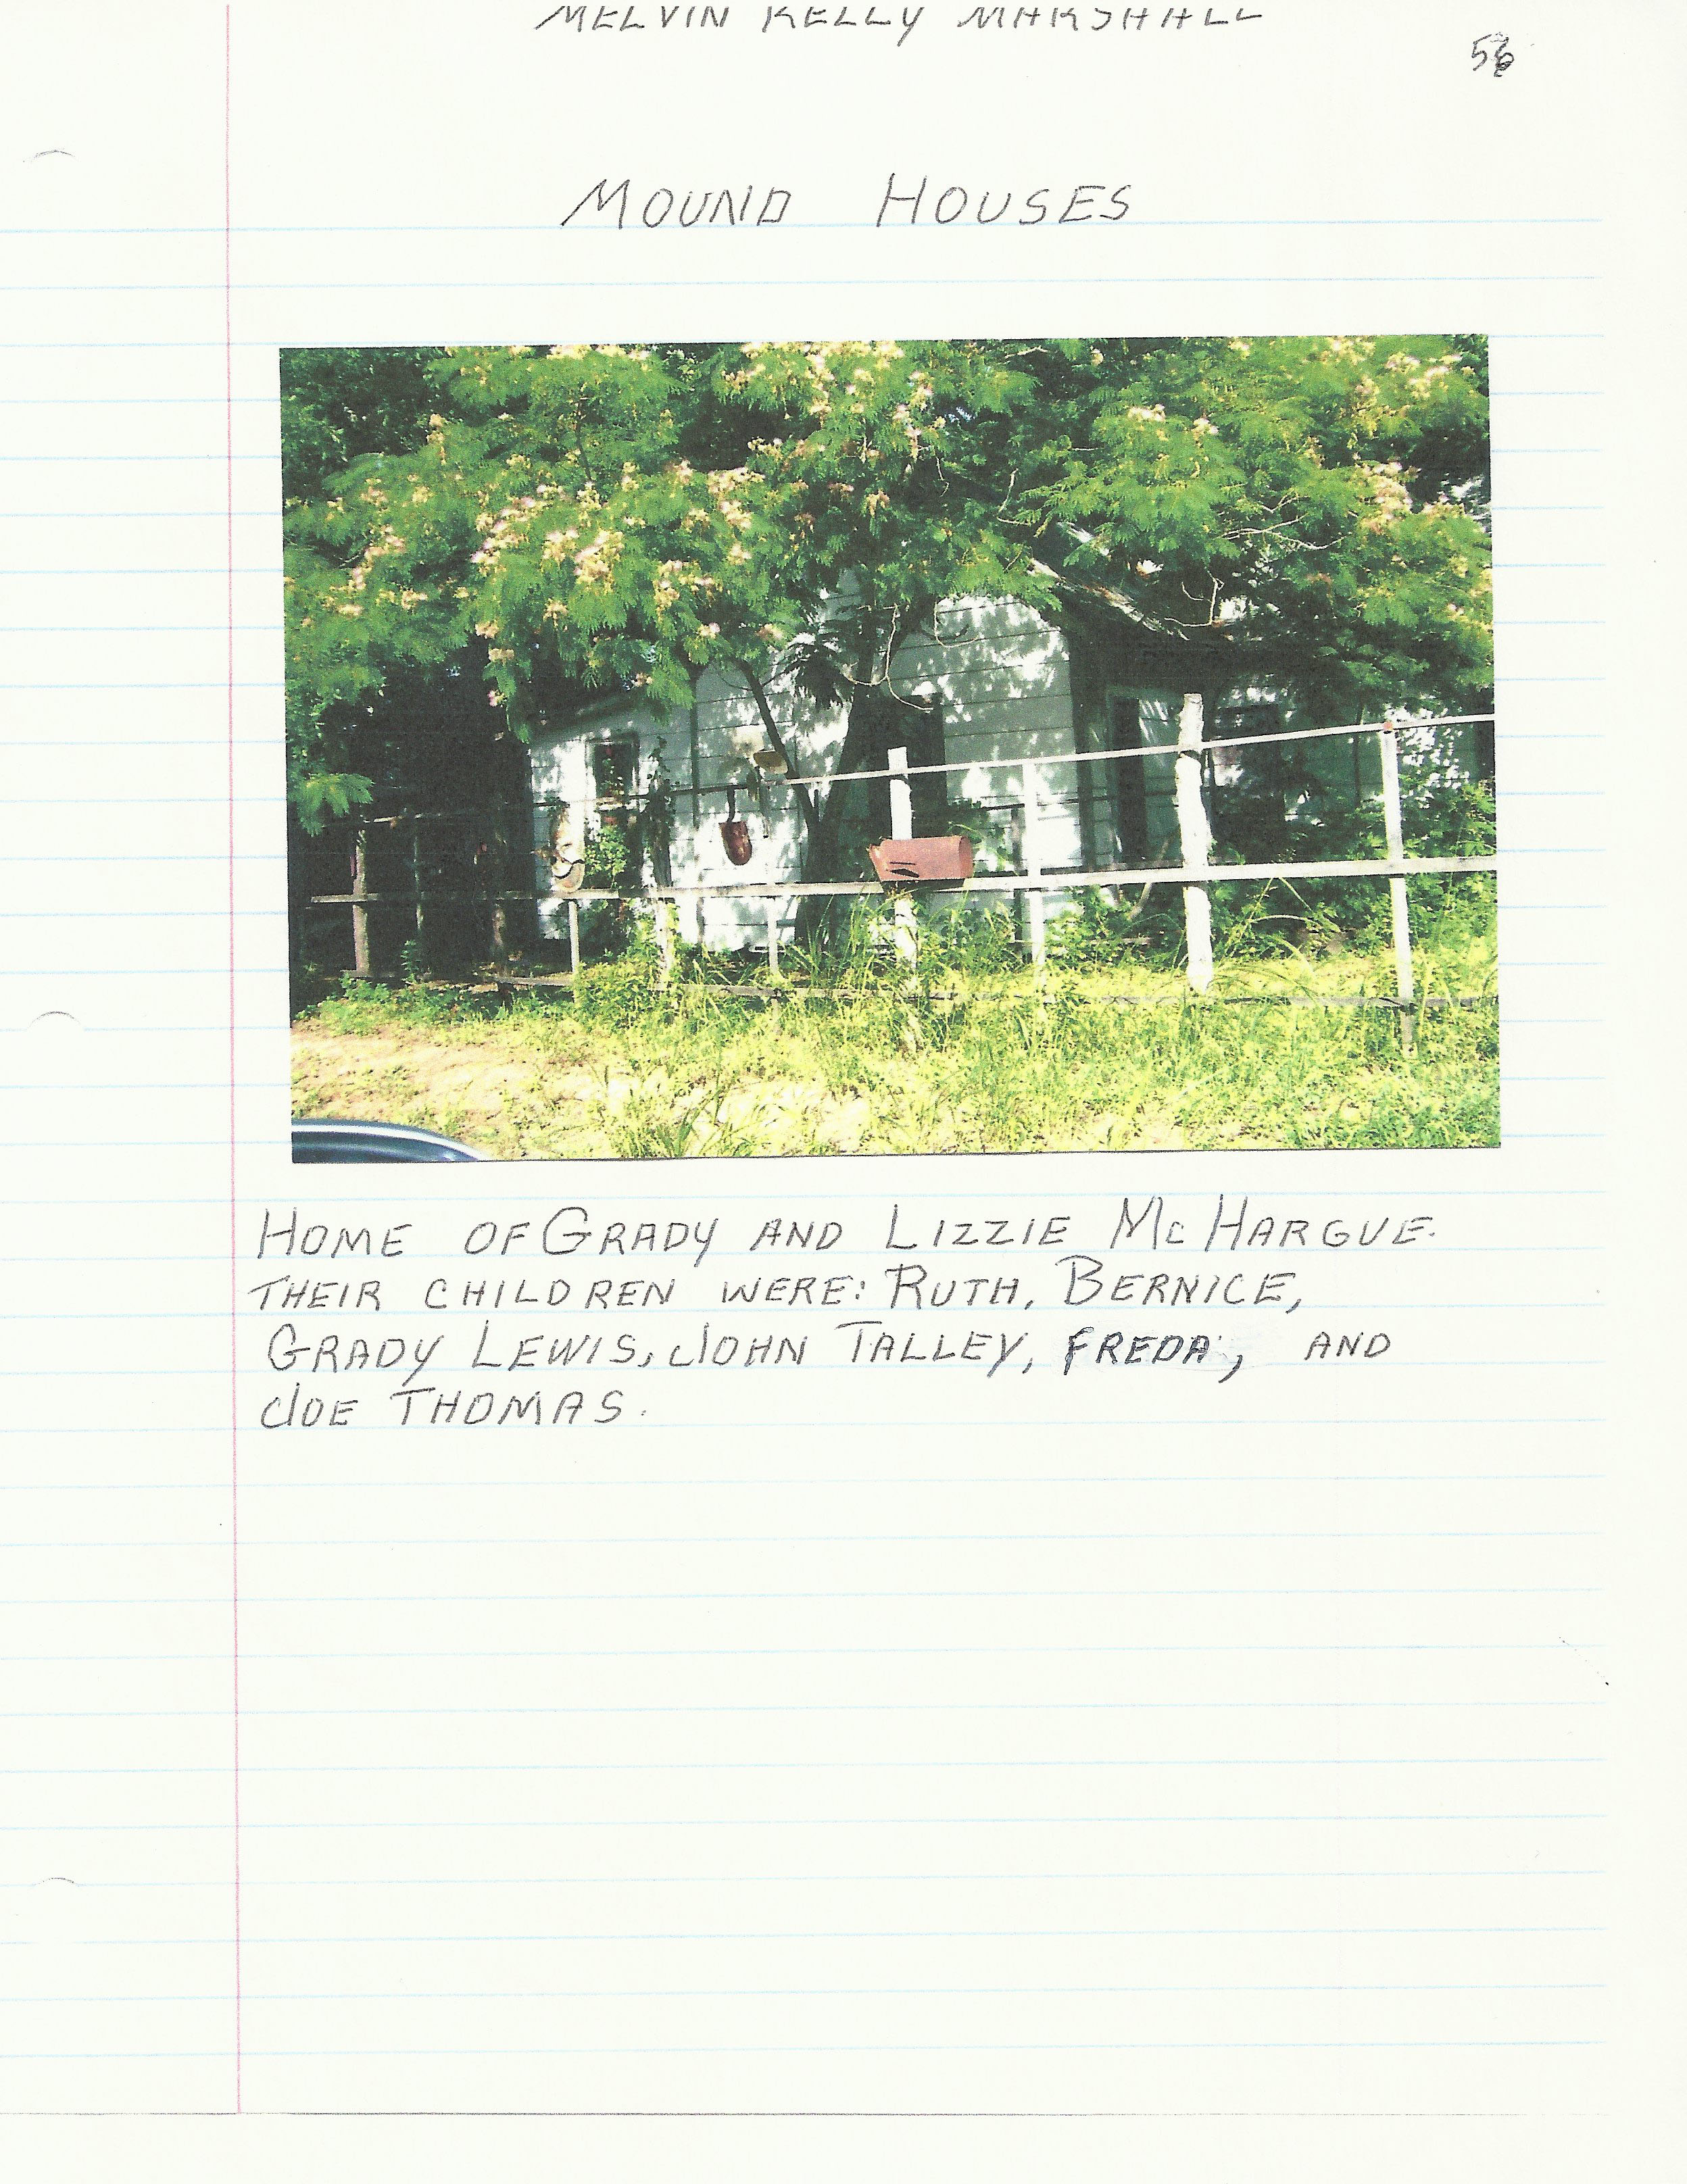 MELVIN KELLY MARSHALL
MOUND HOUSES
HOME OF GRADY AND LIZZIE MCHARGUE.
THEIR CHILDREN WERE: RUTH, BERNICE,
GRADY LEWIS, JOHN TALLEY, FREDA, AND
JOE THOMAS.